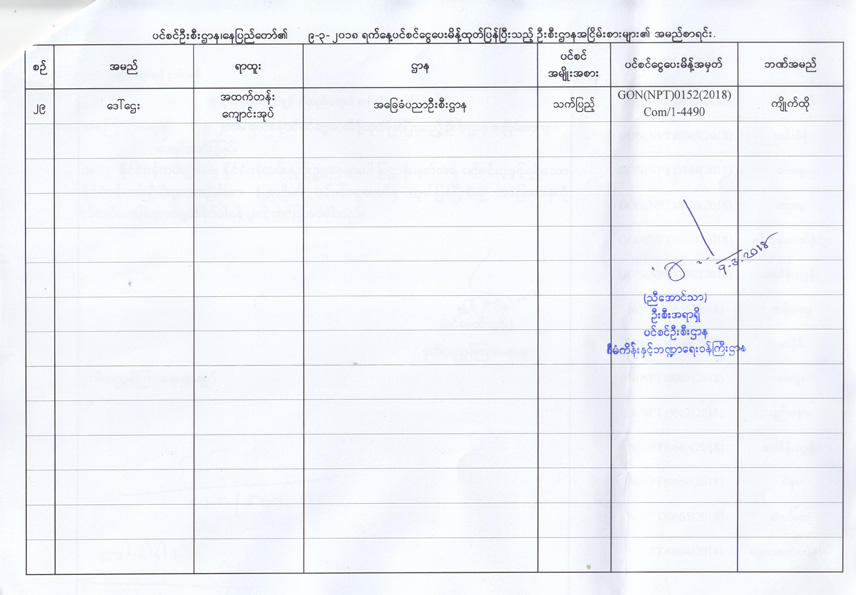 ပင်စင်ဦးစီးဌာန၊နေပြည်တော်၏ ၉-၃-၂၀၁၈ ရက်နေ့ပင်စင်ငွေပေးမိန့်ထုတ်ပြန်ပြီးသည့် ဦးစီးဌာနအငြိမ်းစားများ၏ အမည်စာရင်း.
စဉ် အမည် ရာထူး ဌာန ပင်စင် အမျိုးအစား ပင်စင်ငွေပေးမိန့်အမှတ် ဘဏ်အမည်
၂၉ ဒေါ်ဌေး အထက်တန်း ကျောင်းအုပ် အခြေခံပညာဦးစီးဌာန သက်ပြည့် GON(NPT)0152(2018) Com/1-4490 ကျိုက်ထို
၉-၃-၂၀၁၈
(ညီအောင်သာ)
ဦးစီးအရာရှိ
ပင်စင်ဦးစီးဌာန
စီမံကိန်းနှင့်ဘဏ္ဍာရေးဝန်ကြီးဌာန